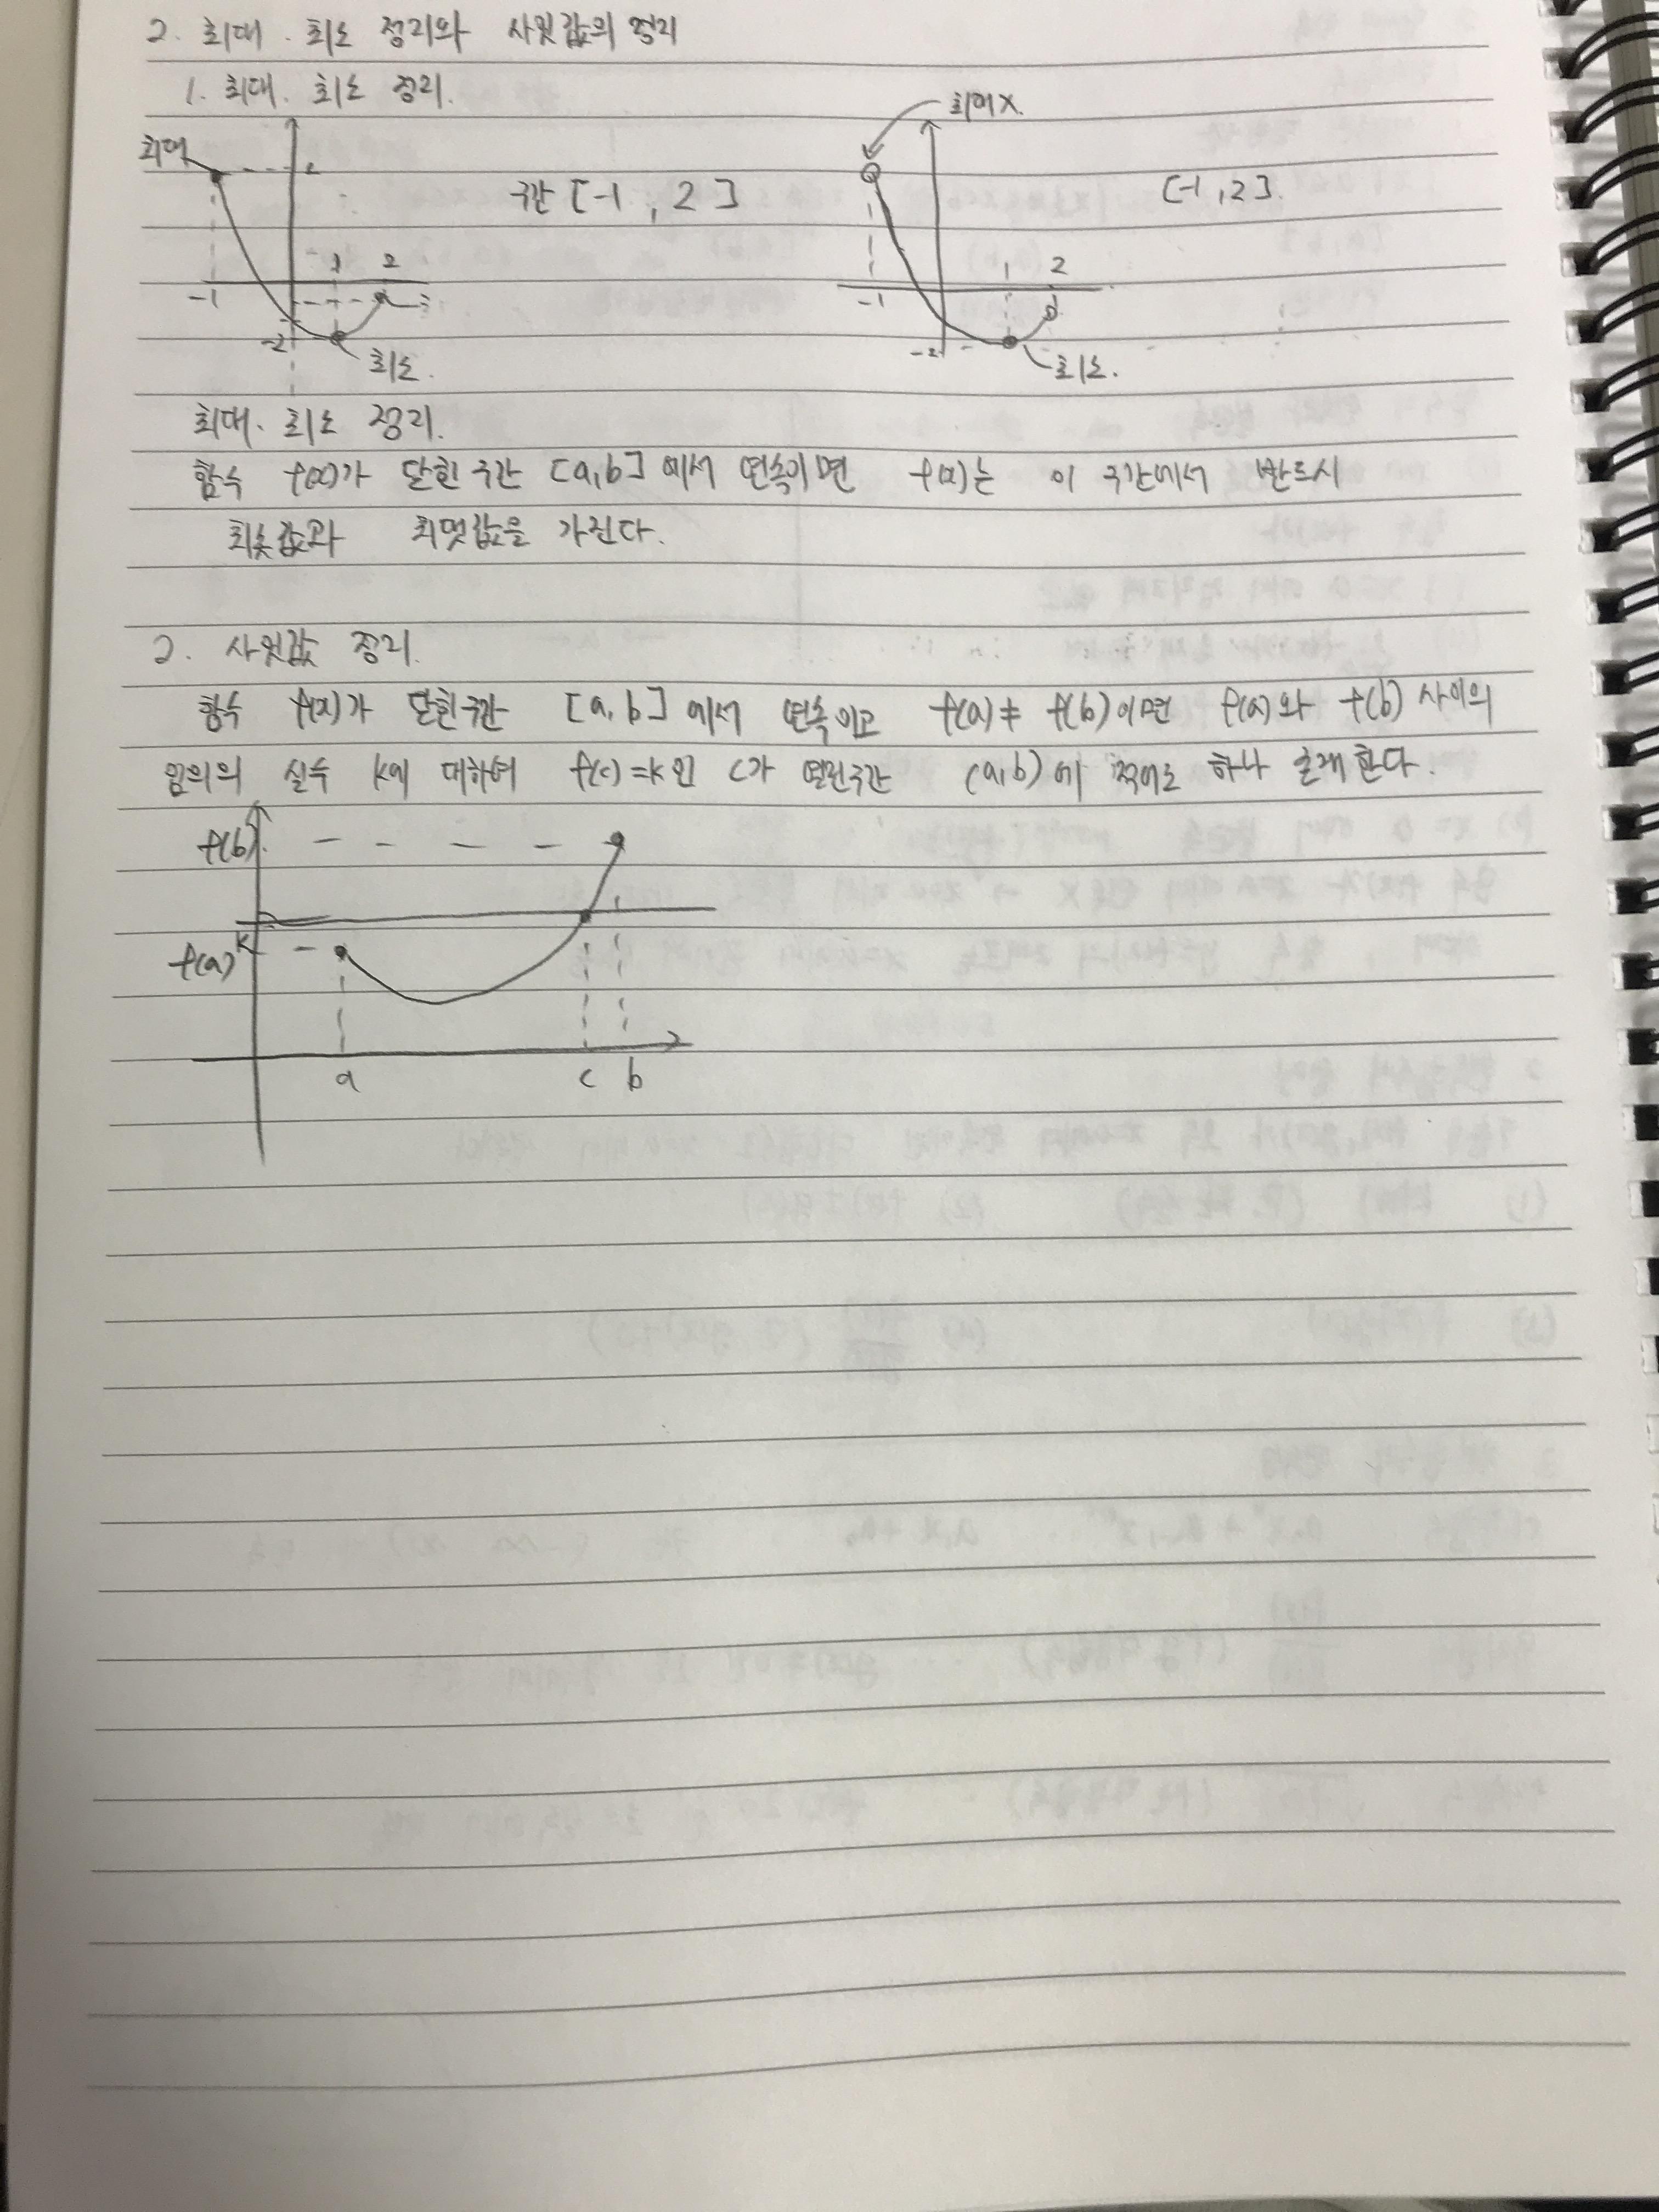 2. 최대 . 최소 정리와 사잇값의 정리
1. 최대. 최소 정리.
최대
2
구간 [-1, 2]
1 2
-1
-2
최소.
최대X.
[-1,2].
1 2
-1
-2
최소.
최대. 최소 정리.
함수 f(x)가 닫힌구간 [a,b]에서 연속이면 f(x)는 이 구간에서 반드시
최솟값과 최댓값을 가진다.
2. 사잇값 정리.
함수 f(x)가 닫힌구간 [a,b]에서 연속이고 f(a)≠f(b)이면 f(a)와 f(b) 사이의
임의의 실수 k에 대하여 f(c)=k인 c가 열린구간 (a,b)에 적어도 하나 존재한다.
f(b).
k
f(a)
a c b